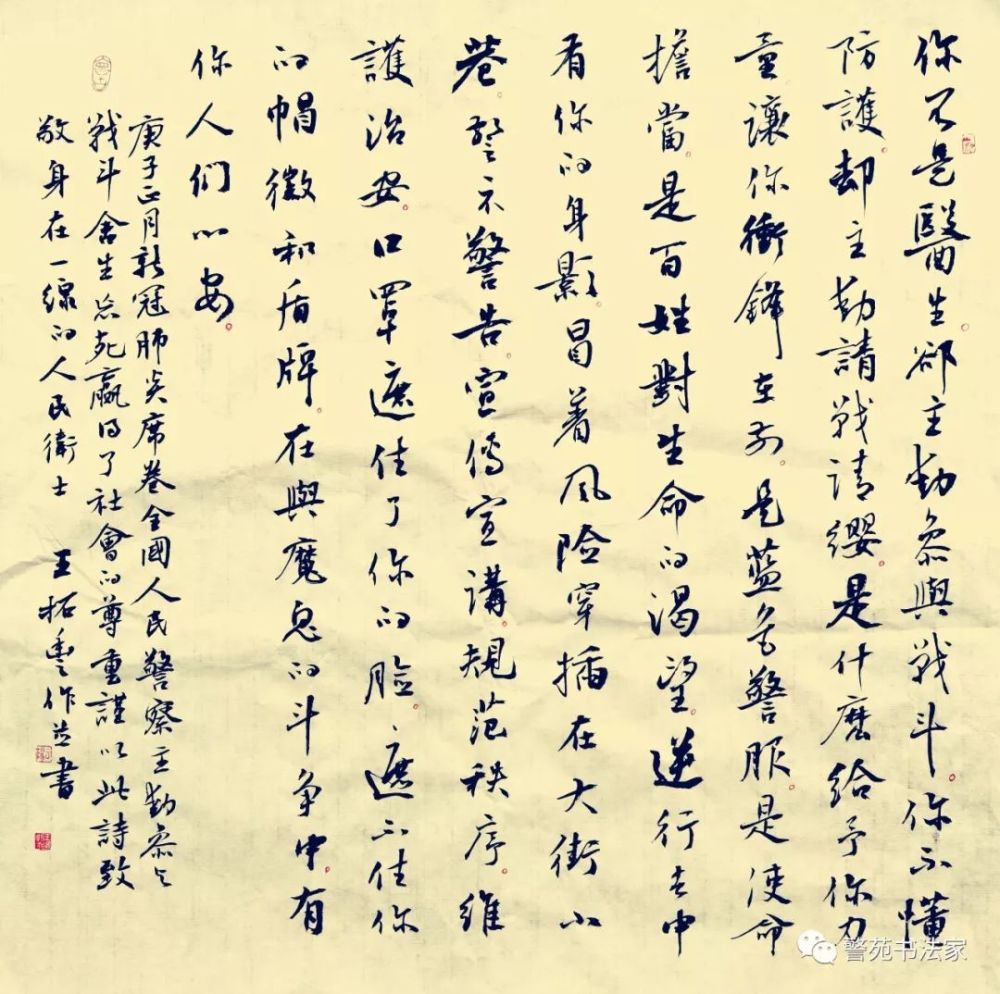 你不是醫生。卻主動參與戰斗。你不懂
防護。却主動請戰請纓。是什麽給予你力
量讓你衝鋒在前。是藍色警服。是使命
擔當。是百姓對生命的渴望。逆行去中
有你的身影。冒着風险穿插在大街小
巷。警示警告。宣傳宣講。規范秩序。維
護治安。口罩遮住了你的脸、遮不住你
的帽徽和盾牌。在與魔鬼的斗争中。有
你人们心安。
庚子正月新冠肺炎席卷全國人民警察主動參与
戰斗舍生忘死贏得了社會的尊重謹以此詩致
敬身在一線的人民衛士 王拓 作并書
警苑书法家